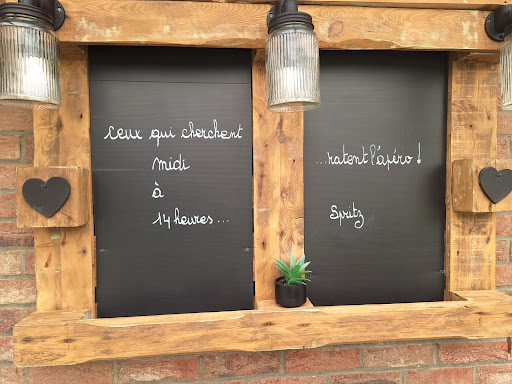 ceux qui cherchent
midi
à
14 heures...
...ratent l'apéro !
Spritz